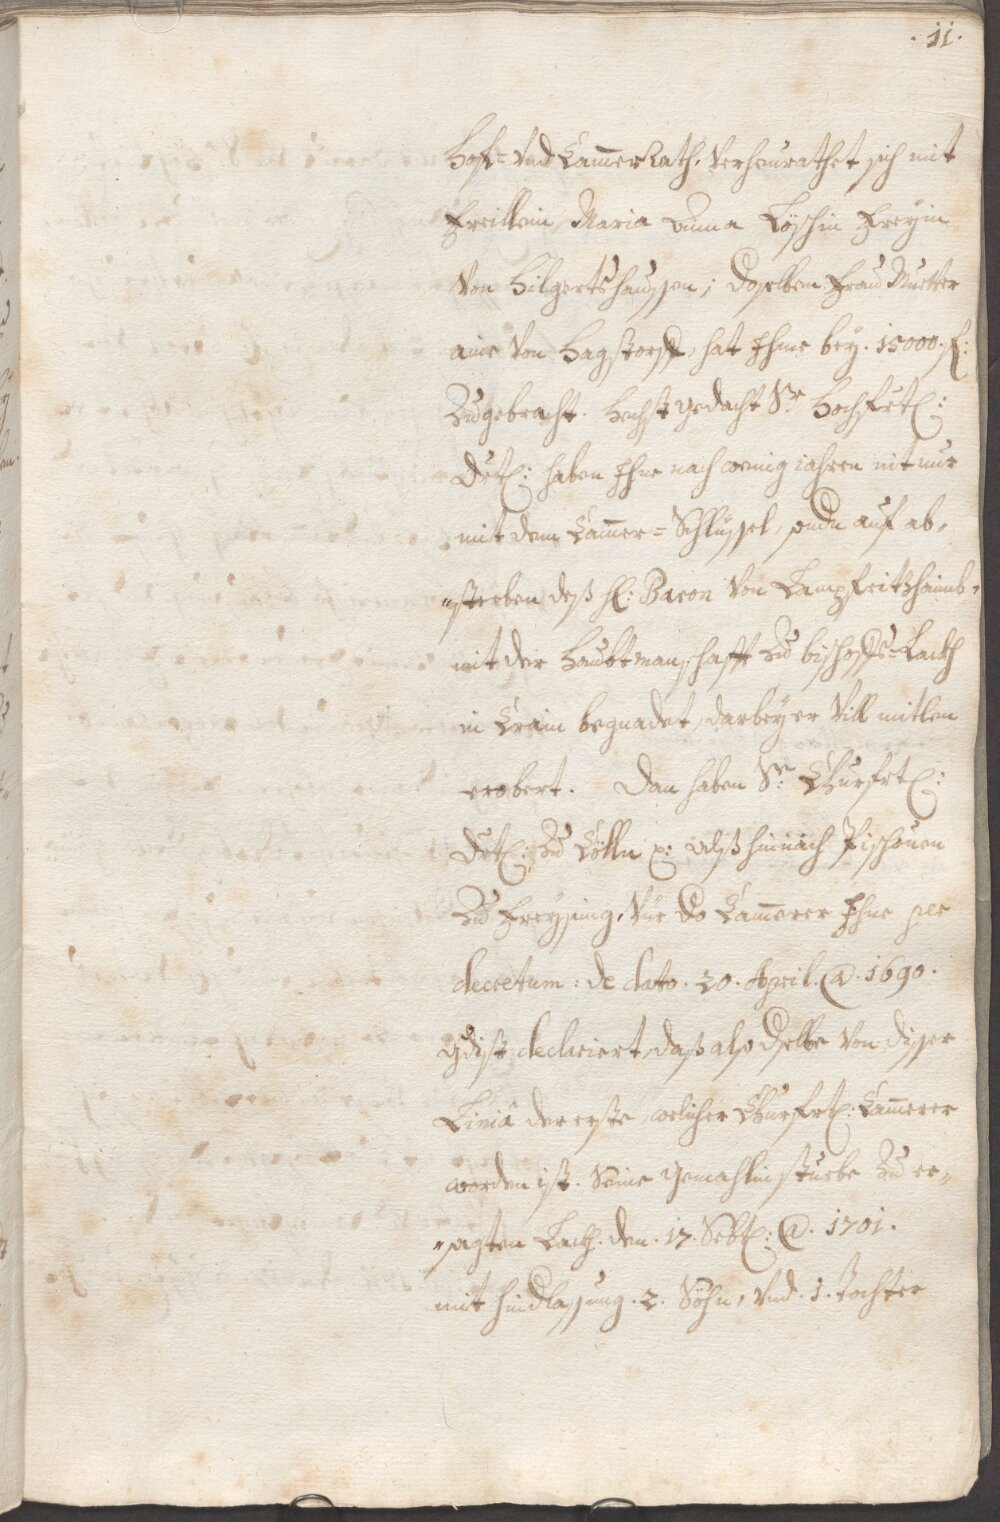 . 11.
Hof= Vnd Cammer Rath, Verheurathet sich mit
Freillein Maria Anna Löschin Freyin
Von Hilgertshaussen, deroselben Frau Muetter
aine Von Hagstorff, hat Ihme bey . 15000. f:
Zuegebracht. Hechst gedacht Sr. Hochfrtl:
Drtl: haben Ihne nach wenig iahren nit nur
mit dem Cammer= Schlüssel, sondn auf ab,
„sterben deß H: Baron Von Lampfritzhaimb,
mit der Haubtmanschafft Zu bischoffs=Lackh
in Crain begnadet, darbey er Vill mitlen
erobert. Dan haben Sr. Churfrtl:
Drtl: Zu Cölln p: alß hinnach Bischouen
Zu Freysing, Vnd do Cammerer Ihne per
decretum: de dato. 20. April. @. 1690.
gdist declariert, daß also dselbe Von diser
Liniâ der erste, welicher Churfrtl: Cammerer
worden ist. Seine gemahlin sturbe Zu er„
„sagten Lackh. den. 17. Sebt: @. 1701.
mit hindlassung . 2. Söhn, Vnd . 1. Tochter